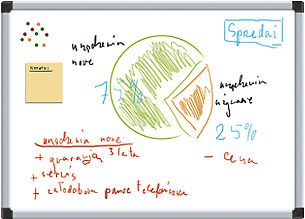 Sprzedaż
urządzenia
nowe
75%
urządzenia
używane
25%
urządzenia nowe
+ gwarancja 3 lata
+ serwis
+ całodobowa pomoc telefoniczna
- cena